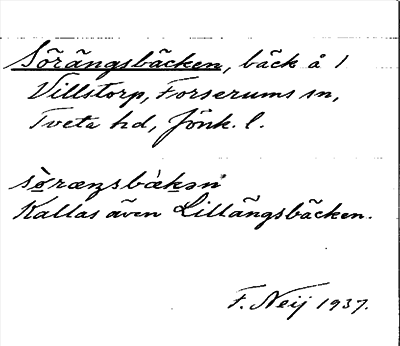 Sörängsbäcken, bäck å 1
Villstorp, Forserums sn,
Tveta hd, Jönk. l.
sö̀ræŋsbæ̀kən
Kallas även Lillängsbäcken.
F. Neij 1937.